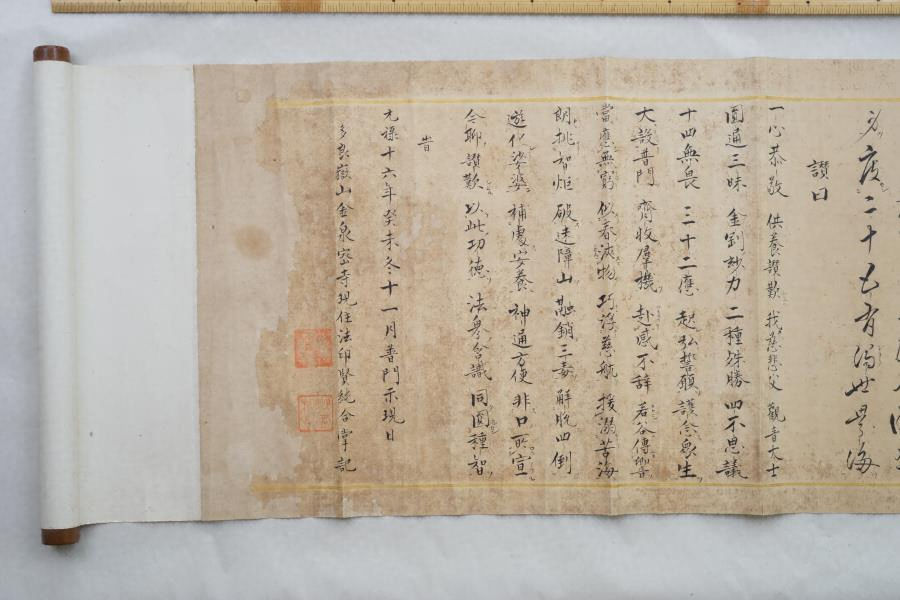 度二十五有濁世
讃曰
一心恭敬 供養讃歎 我慈悲父 觀音大士
圓通三昧 金剛妙力 二種殊勝 四不思議
十四無畏 三十二應 起弘誓願 護念衆生
大哉普門 齊收羣機 赴感不辞 若谷傳響
當應無窮 似春 物 巧浮慈航 援溺苦海
朗挑智炬 破迷障山 融銷三毒 解脱四倒
遊化娑婆 補處安養 神通方便 非口所宣
今聊讃歎 以此功德 法界含識 同圓種智
旹
元祿十六年癸未冬十一月普門示現日
多良嶽山金泉密寺現住法印賢純合掌記